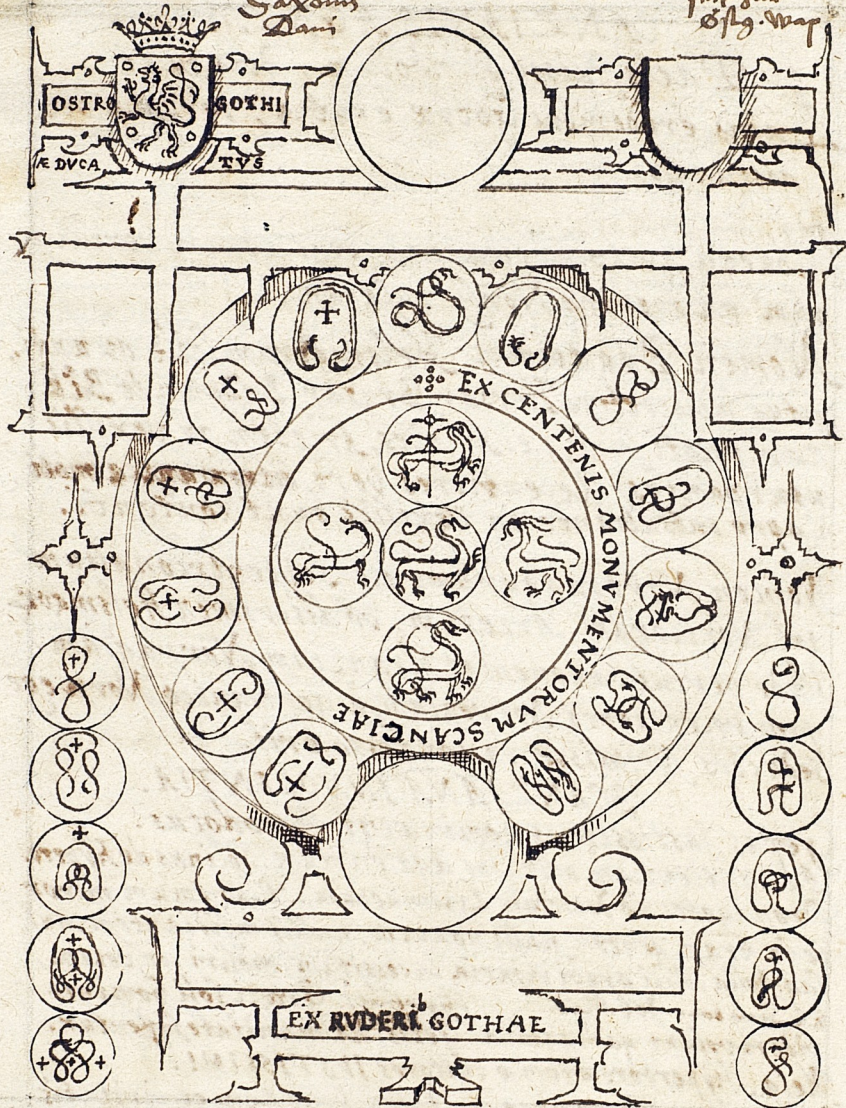 Saxonu
Dani
Østg. Wap
OSTRO GOTHI
Æ DVCA TVS
EX CENTENIS MONVMENTORVM SCANCIAE
EX RVDERIb GOTHAE